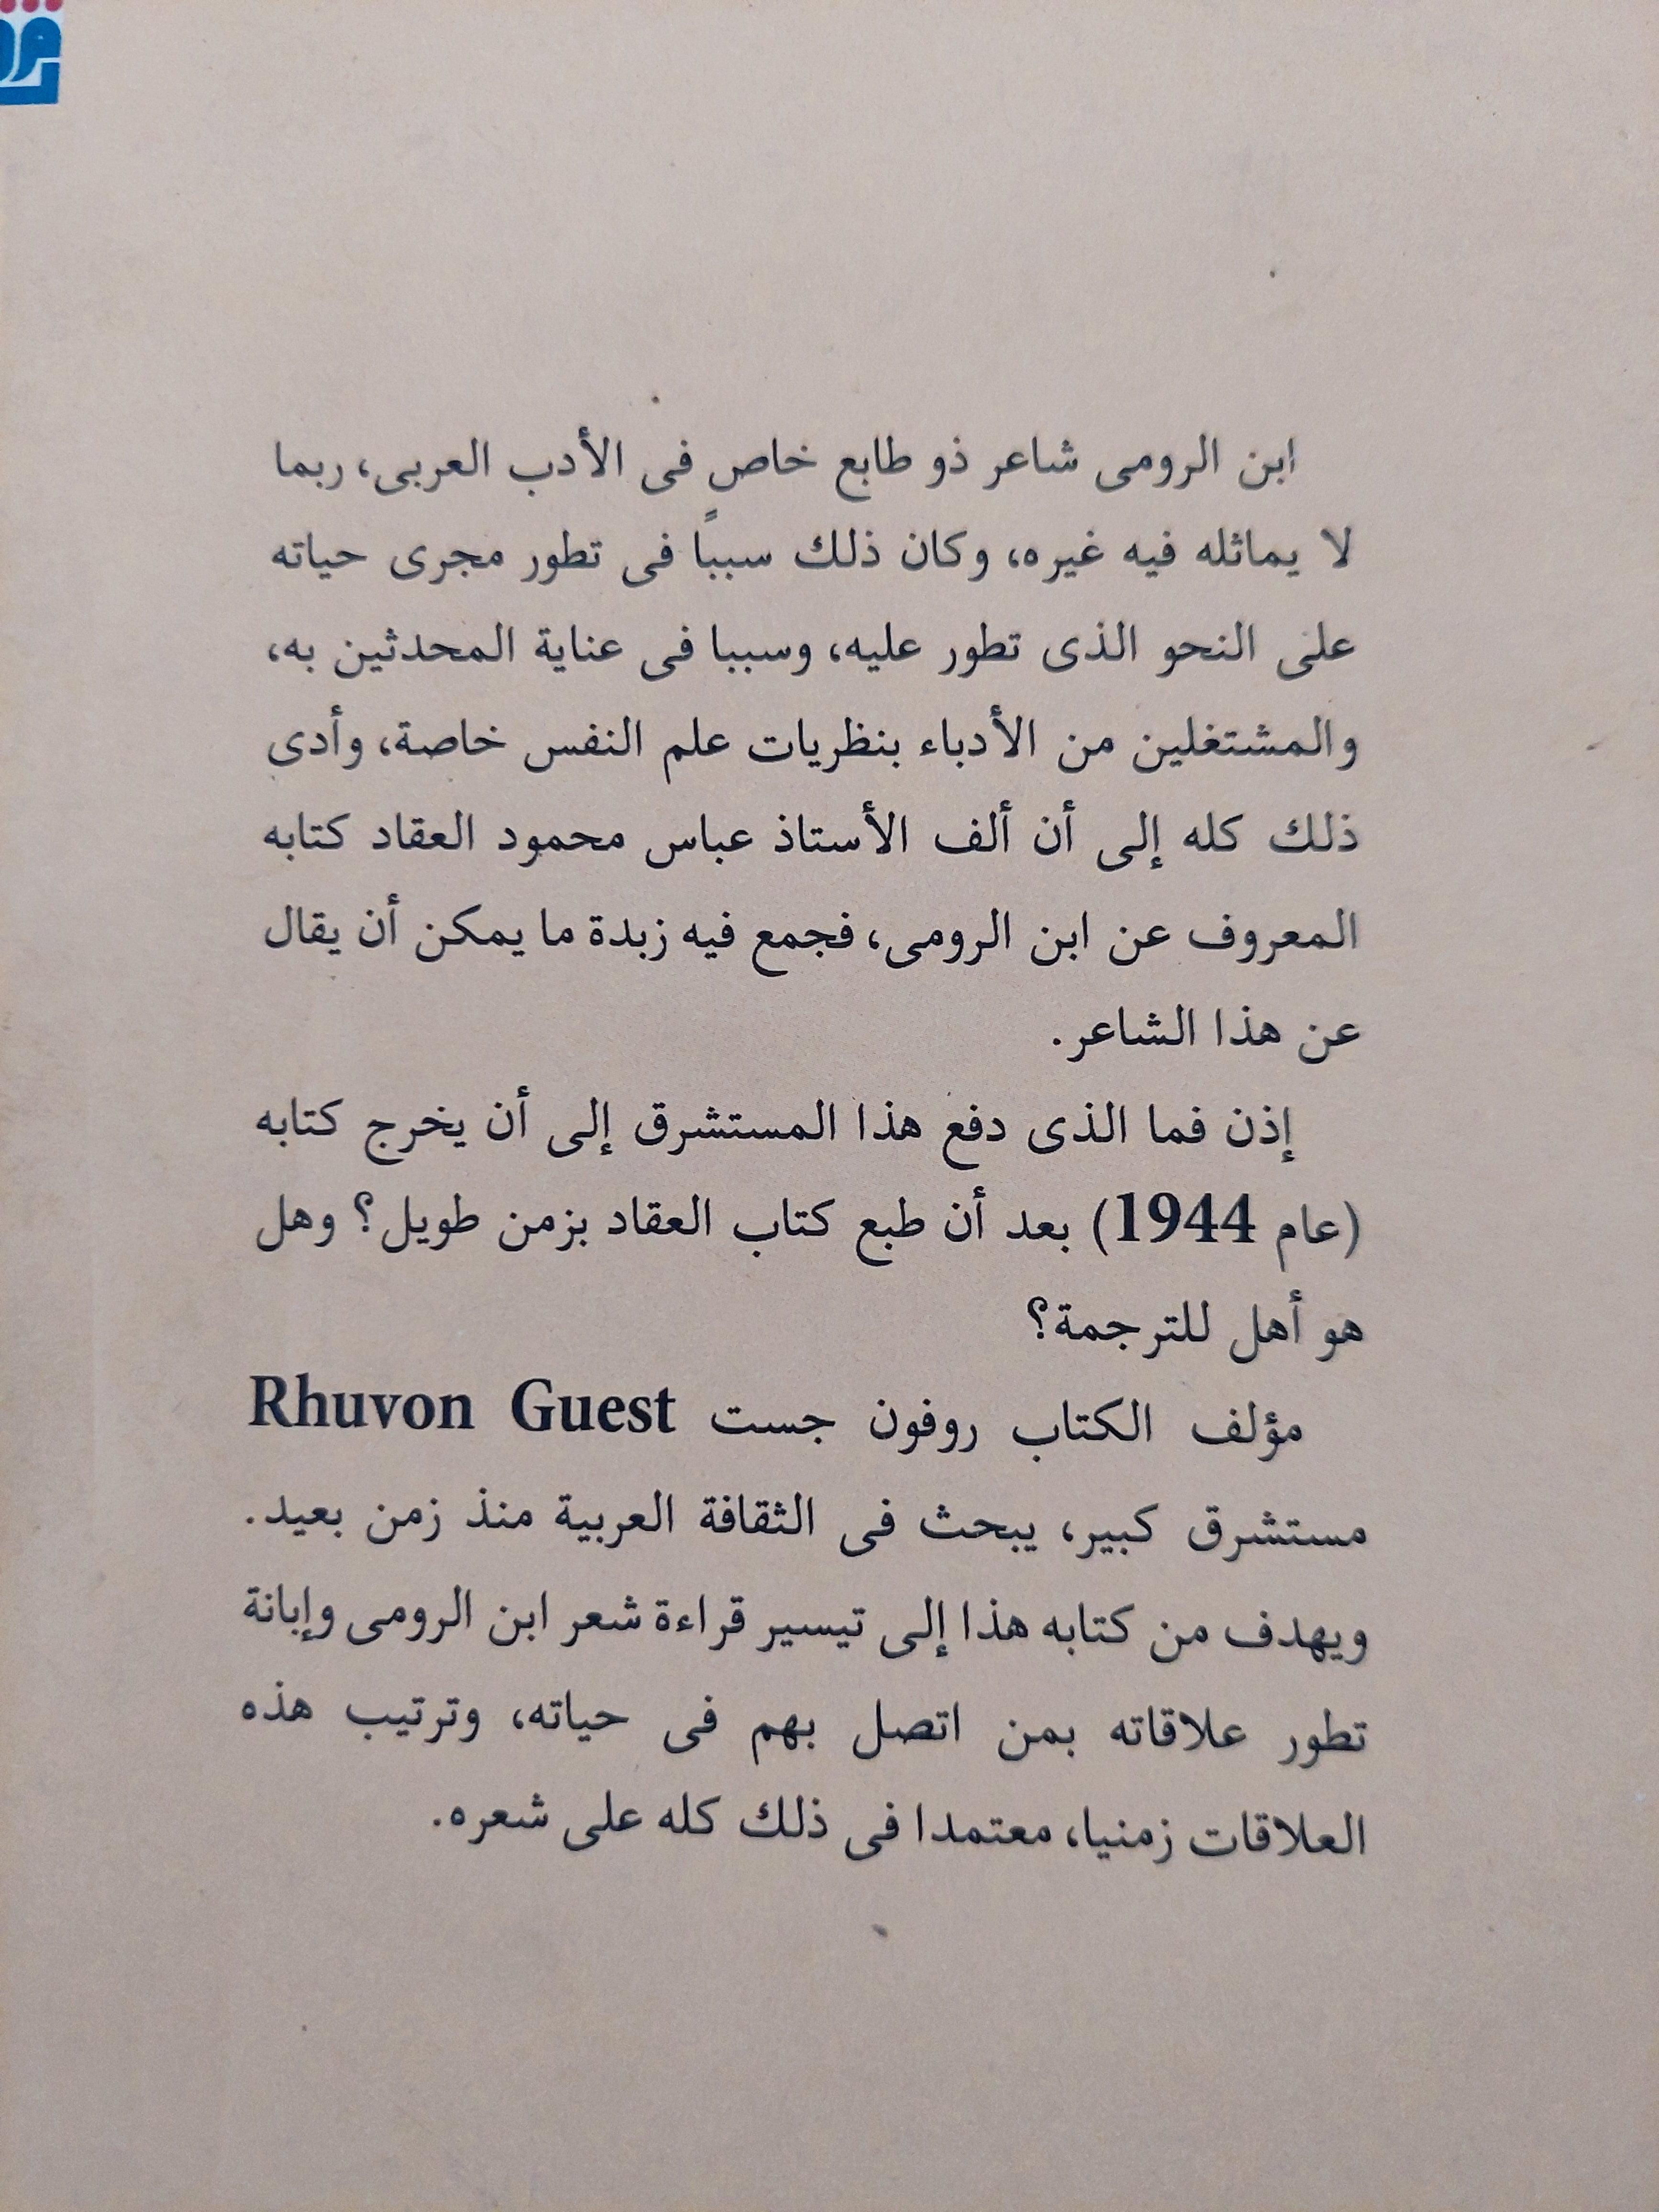 ابن الرومى شاعر ذو طابع خاص فى الأدب العربى، ربما
لا يماثله فيه غيره، وكان ذلك سببًا فى تطور مجرى حياته
على النحو الذى تطور عليه، وسببا فى عناية المحدثين به،
والمشتغلين من الأدباء بنظريات علم النفس خاصة، وأدى
ذلك كله إلى أن ألف الأستاذ عباس محمود العقاد كتابه
المعروف عن ابن الرومى، فجمع فيه زبدة ما يمكن أن يقال
عن هذا الشاعر.
إذن فما الذى دفع هذا المستشرق إلى أن يخرج كتابه
(عام 1944) بعد أن طبع كتاب العقاد بزمن طويل؟ وهل
هو أهل للترجمة؟
مؤلف الكتاب روفون جست Rhuvon Guest
مستشرق كبير، يبحث فى الثقافة العربية منذ زمن بعيد.
ويهدف من كتابه هذا إلى تيسير قراءة شعر ابن الرومى وإبانة
تطور علاقاته بمن اتصل بهم فى حياته، وترتيب هذه
العلاقات زمنيا، معتمدا فى ذلك كله على شعره.